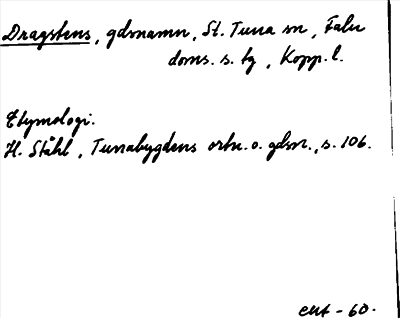 Dragstens, gdsnamn, St. Tuna sn, Falu
doms. s. tg, Kopp. l.
Etymologi.
H. Ståhl, Tunabygdens ortn. o. gdsn., s. 106.
-60.